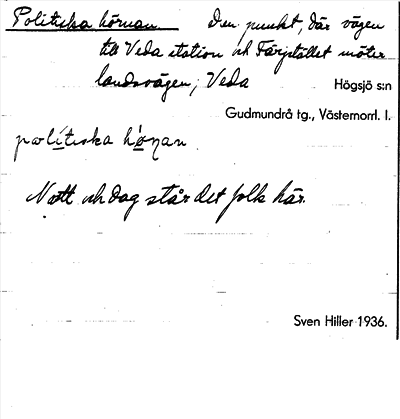 Politiska hörnan Den punkt, där vägen
till Veda station och Färjstället möter
landsvägen, Veda Högsjö s:n
Gudmundrå tg., Västernorrl. l.
polítiska hö́rnan
Natt och dag står det folk här.
Sven Hiller 1936.